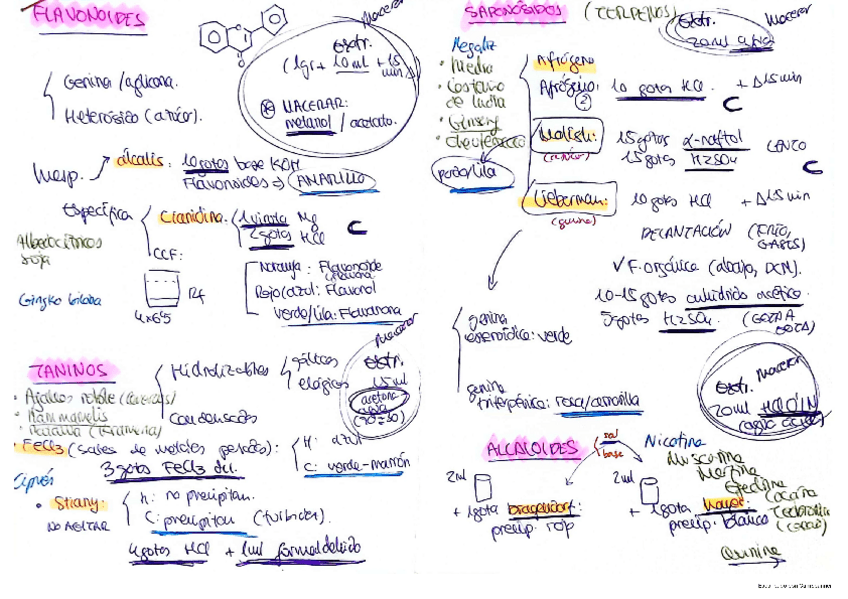 FLAVONOIDES
Macerar
Extr.
(1gr + 10ml + 15 min)
MACERAR:
metanol / acetato.
Genina / aglicona.
Heterósido (azúcar).
Inesp.
álcalis: 10 gotas base KOH
Flavonoides => AMARILLO
Específica
Cianidina
1 viruta Mg
2 gotas HCl
C
CCF:
Rf
4x6'5
Naranja: Flavonoide
Rojo/azul: Flavonol
Verde/lila: Flavanona
soja
Gingko biloba
TANINOS
Hidrolizables
gálicos
elágicos
Condensados
Macerar
Extr.
15 ml
acetona-agua
(70:30)
Hammamelis
Ratania (Krameria)
FeCl3 (sales de metales pesados):
3 gotas FeCl3 dil.
H: azul
C: verde-marrón
Ciprés
Stiany:
NO AGITAR
h: no precipitan.
C: precipitan (turbidez).
4 gotas HCl + 1ml formaldehido
SAPONÓSIDOS (TERPENOS)
Extr. Macerar
20ml agua
Regaliz
Hiedra
Castaño de India
Ginseng
Afrógeno
Afrógeno: 10 gotas HCl + Δ15 min
C
Molish:
(azúcar)
15 gotas α-naftol
15 gotas H2SO4
LENTO
C
púrpura/lila
Lieberman:
(genina)
10 gotas HCl + Δ15 min
DECANTACIÓN (FRÍO, GASES)
√ F. orgánica (abajo, DCM).
10-15 gotas anhídrido acético
5 gotas H2SO4 (GOTA A GOTA)
genina esteroídica: verde
genina triterpénica: rosa/amarilla
Extr. Macerar
20ml HCl 0'1N
(agua ácida)
ALCALOIDES
sal
base
2ml
+ 1gota Dragendorf
precip. rojo
2ml
+ 1gota Mayer
precip. blanco
Nicotina
Muscarina
Morfina
Efedrina
Cocaína
Teobromina
(cacao)
Quinina